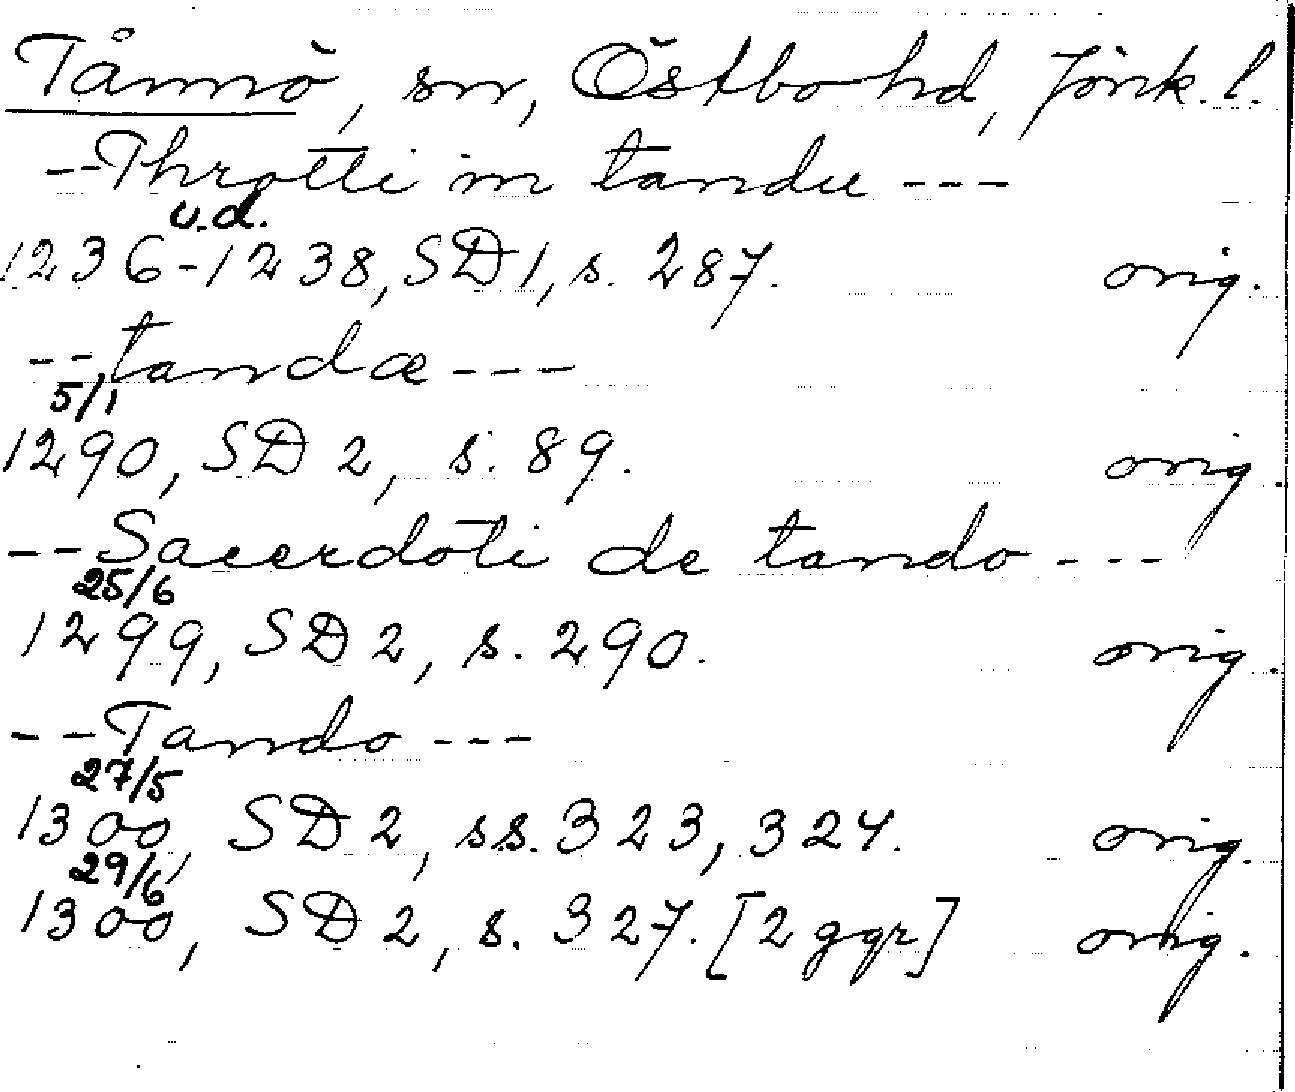 Tånnö, sn, Östbo hd, Jönk. l.
--Throtti in tandu ---
u.d.
1236-1238, SD 1, s. 287. orig.
--tandæ ---
5/1
1290, SD 2, s. 89. orig.
--Sacerdoti de tando ---
25/6
1299, SD 2, s. 290. orig.
--Tando ---
27/5
1300, SD 2, ss. 323, 324. orig.
29/6
1300, SD 2, s. 327. [2 ggr] orig.